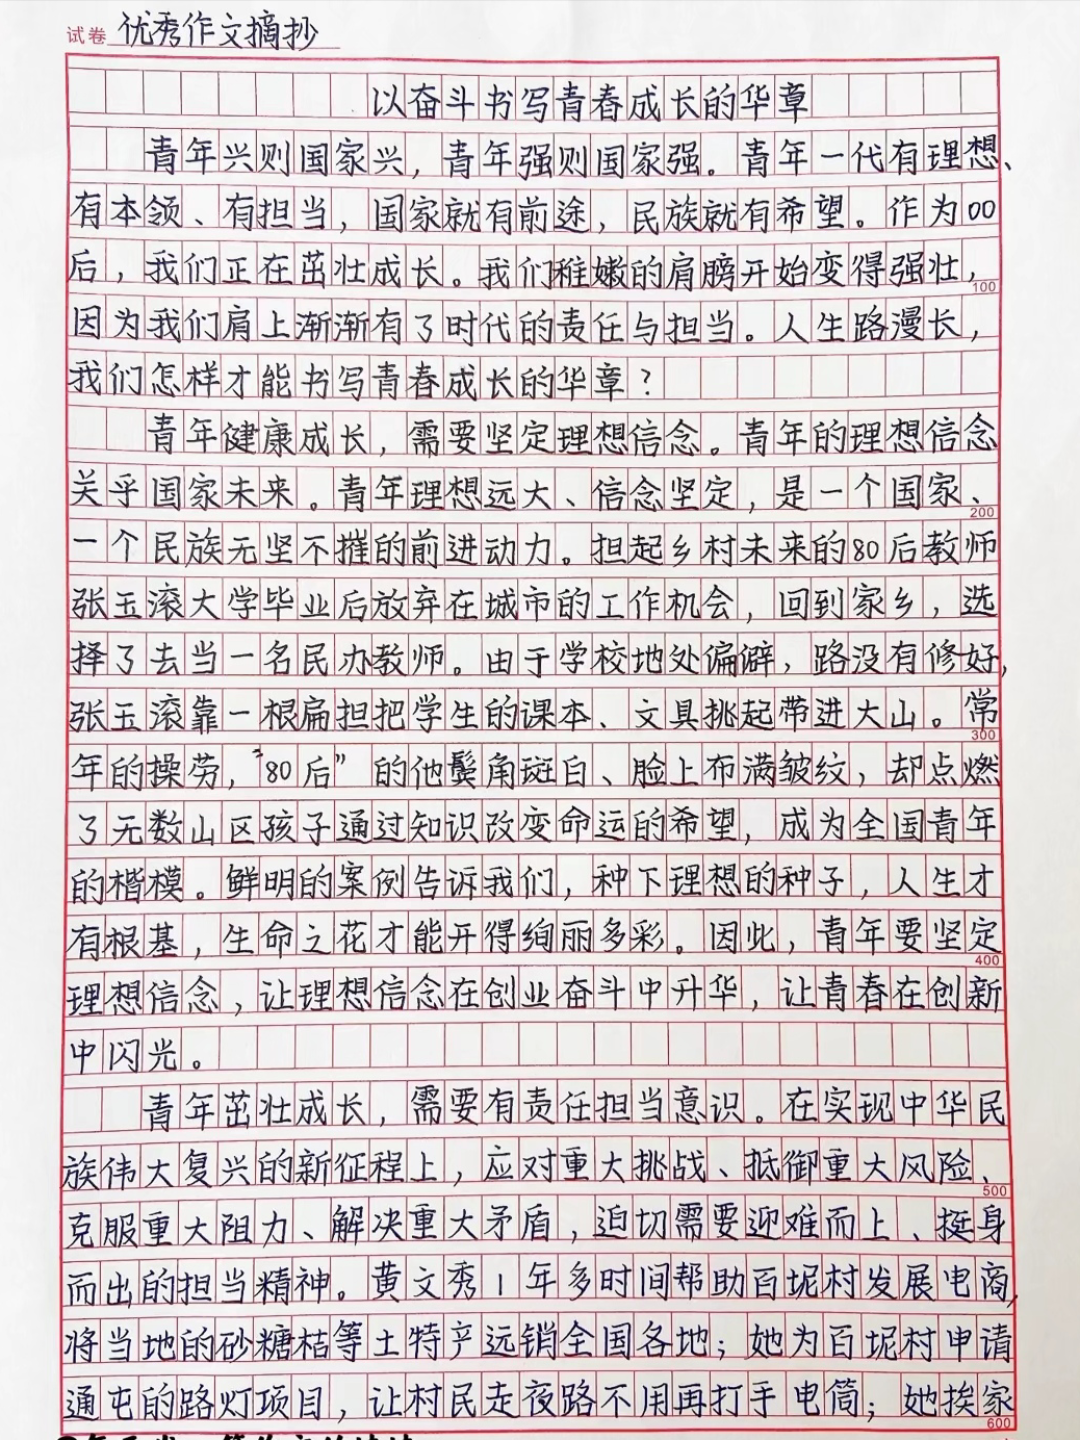 试卷 优秀作文摘抄
以奋斗书写青春成长的华章
青年兴则国家兴，青年强则国家强。青年一代有理想、
有本领、有担当，国家就有前途，民族就有希望。作为00
后，我们正在茁壮成长。我们稚嫩的肩膀开始变得强壮，
100
因为我们肩上渐渐有了时代的责任与担当。人生路漫长，
我们怎样才能书写青春成长的华章？
青年健康成长，需要坚定理想信念。青年的理想信念
关乎国家未来。青年理想远大、信念坚定，是一个国家、
200
一个民族无坚不摧的前进动力。担起乡村未来的80后教师
张玉滚大学毕业后放弃在城市的工作机会，回到家乡，选
择了去当一名民办教师。由于学校地处偏僻，路没有修好，
张玉滚靠一根扁担把学生的课本、文具挑起带进大山。常
300
年的操劳，“80后”的他鬓角斑白、脸上布满皱纹，却点燃
了无数山区孩子通过知识改变命运的希望，成为全国青年
的楷模。鲜明的案例告诉我们，种下理想的种子，人生才
有根基，生命之花才能开得绚丽多彩。因此，青年要坚定
400
理想信念，让理想信念在创业奋斗中升华，让青春在创新
中闪光。
青年茁壮成长，需要有责任担当意识。在实现中华民
族伟大复兴的新征程上，应对重大挑战、抵御重大风险、
500
克服重大阻力、解决重大矛盾，迫切需要迎难而上、挺身
而出的担当精神。黄文秀1年多时间帮助百坭村发展电商，
将当地的砂糖桔等土特产远销全国各地；她为百坭村申请
通屯的路灯项目，让村民走夜路不用再打手电筒；她挨家
600